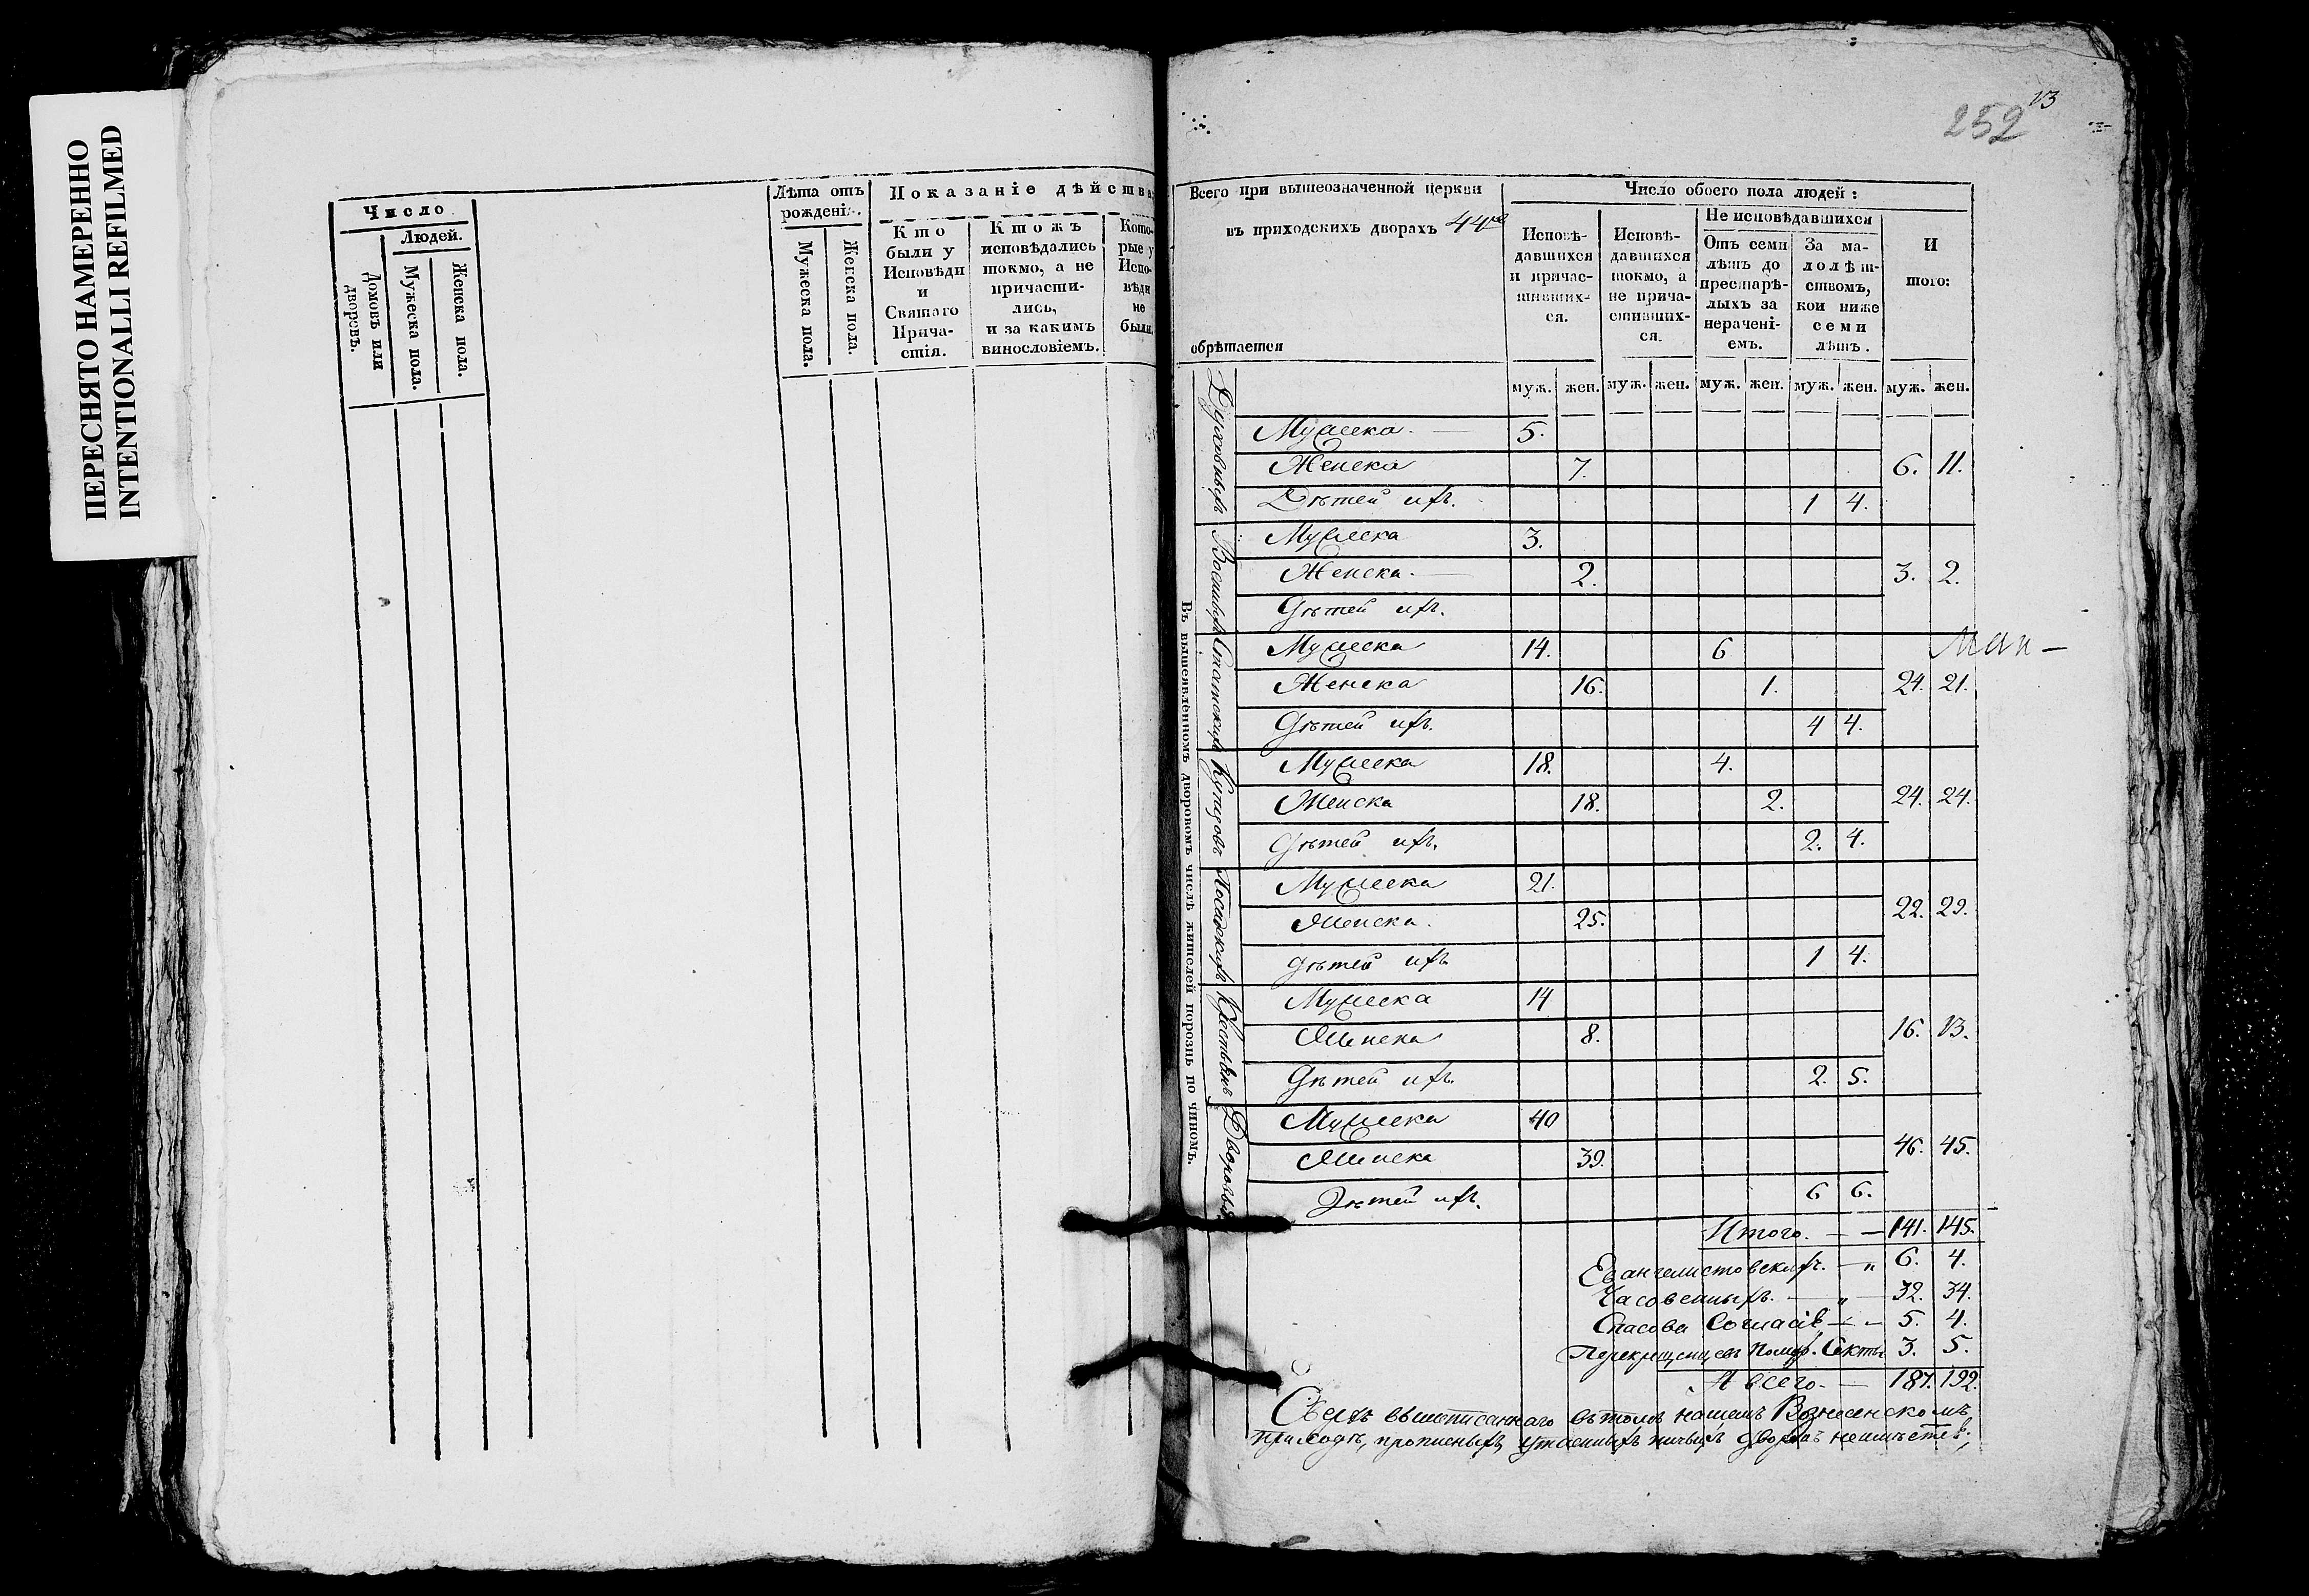 ПЕРЕСНЯТО НАМЕРЕННО
INTENTIONALLI REFILMED
Число
Людей.
Домовъ или дворовъ.
Мужеска пола.
Женска пола.
Лѣта отъ рожденія.
Мужеска пола.
Женска пола.
Показаніе дѣйства
Кто были у Исповѣди и Святаго Прича-стія.
Ктожъ исповѣдались токмо, а не причасти-лись, и за какимъ винословіемъ.
Кото-рые у Испо-вѣди не были.
13
252
Всего при вышеозначенной церкви
въ приходскихъ дворахъ 44хъ
обрѣтается
Число обоего пола людей:
Исповѣ-давшихся и причас-тивших-ся.
Исповѣ-давшихся токмо, а не прича-стивших-ся.
Не исповѣдавшихся
Отъ семи лѣтъ до престарѣ-лыхъ за нерачені-емъ.
За ма-лолѣт-ствомъ, кои ниже семи лѣтъ.
И того:
муж. жен. муж. жен. муж. жен. муж. жен. муж. жен.
Въ вышеявленномъ дворовомъ числѣ жителей порознь по чиномъ.
Духовныхъ
Мужеска 5.
Женска 7. 6. 11.
Дѣтей ихъ. 1 4.
Военныхъ
Мужеска 3.
Женска 2. 3. 2.
Дѣтей ихъ.
Статскихъ
Мужеска 14. 6
Женска 16. 1. 24. 21.
Дѣтей ихъ. 4 4.
Купцовъ
Мужеска 18. 4.
Женска 18. 2. 24. 24.
Дѣтей ихъ. 2. 4.
Посадскихъ
Мужеска 21.
Женска. 25. 22. 29.
Дѣтей ихъ 1 4.
Крестьянъ
Мужеска 14
Женска 8. 16. 13.
Дѣтей ихъ. 2. 5.
Дворовыхъ
Мужеска 40
Женска 39. 46. 45.
Дѣтей ихъ. 6 6.
Итого. — — 141. 145.
Евангелистовскихъ. — „ 6. 4.
Часовенныхъ. — „ — 32. 34.
Спасова Согласія — — 5. 4.
Перекрещенцевъ Помор. Секты 3. 5.
А всего — 187. 192.
Сверхъ вышеписаннаго въ томъ нашемъ Вознесенскомъ
приходѣ, прописныхъ, утаенныхъ ничьихъ дворовъ неимѣется,